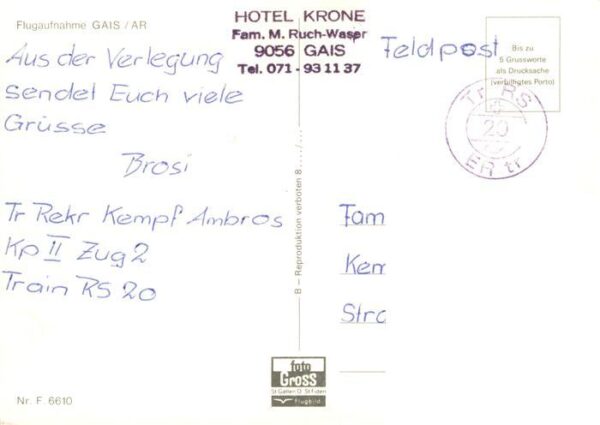 Flugaufnahme GAIS / AR
HOTEL KRONE
Fam. M. Ruch-Waser
9056 GAIS
Tel. 071 - 93 11 37
Feldpost
Bis zu
5 Grussworte
als Drucksache
(verbilligtes Porto)
Tr RS
20
ER tr
Aus der Verlegung
sendet Euch viele
Grüsse
Brosi
Tr Rekr Kempf Ambros
Kp II Zug 2
Train RS 20
B – Reproduktion verboten B..../....
Fam
Kem
Stra
foto
Gross
St. Gallen O St. Fiden
flugbild
Nr. F. 6610